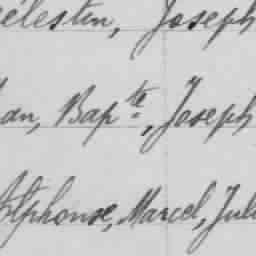 élestin, Joseph
an, Bapte, Joseph
Alphonse, Marcel, Jul